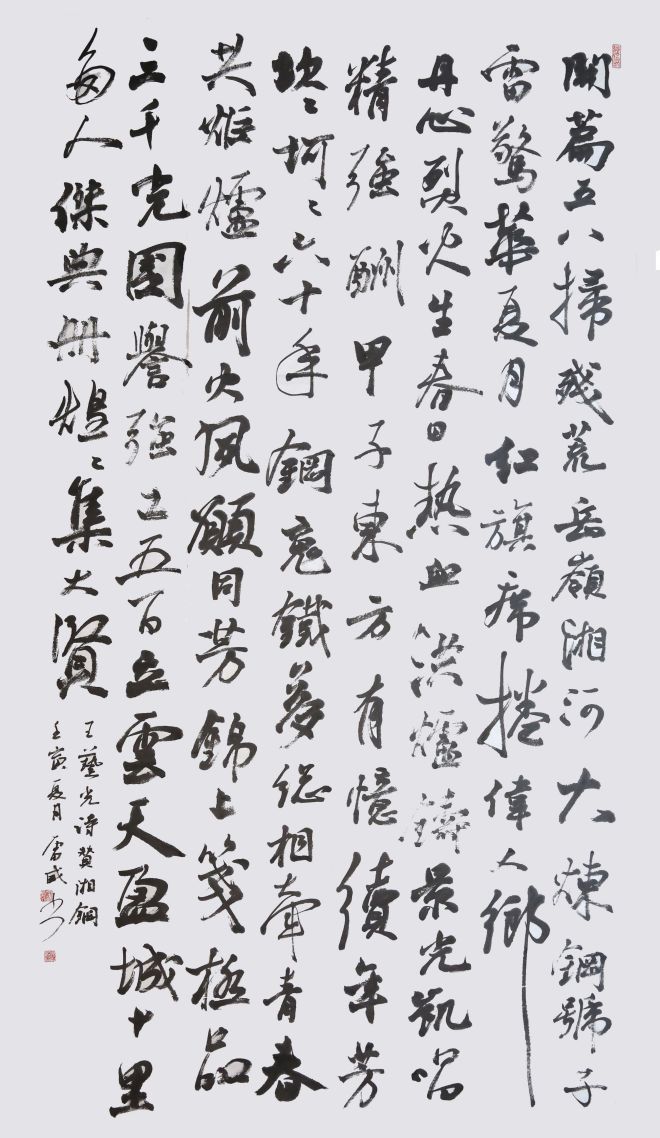 開篇五八掃殘荒岳嶺湘河大煉鋼號子
雷驚華夏月紅旗席捲偉人鄉
丹心烈火生春日熱血洪爐鑄景光凱唱
精強酬甲子東方有憶續年芳
坎〻坷〻六十年鋼鐵夢總相牽青春
共爐前火夙願同芳錦上箋極品
三千國譽強五百立雲天盈城十里
多人傑典冊煌〻集大賢
王藝光詩贊湘鋼
壬寅夏月